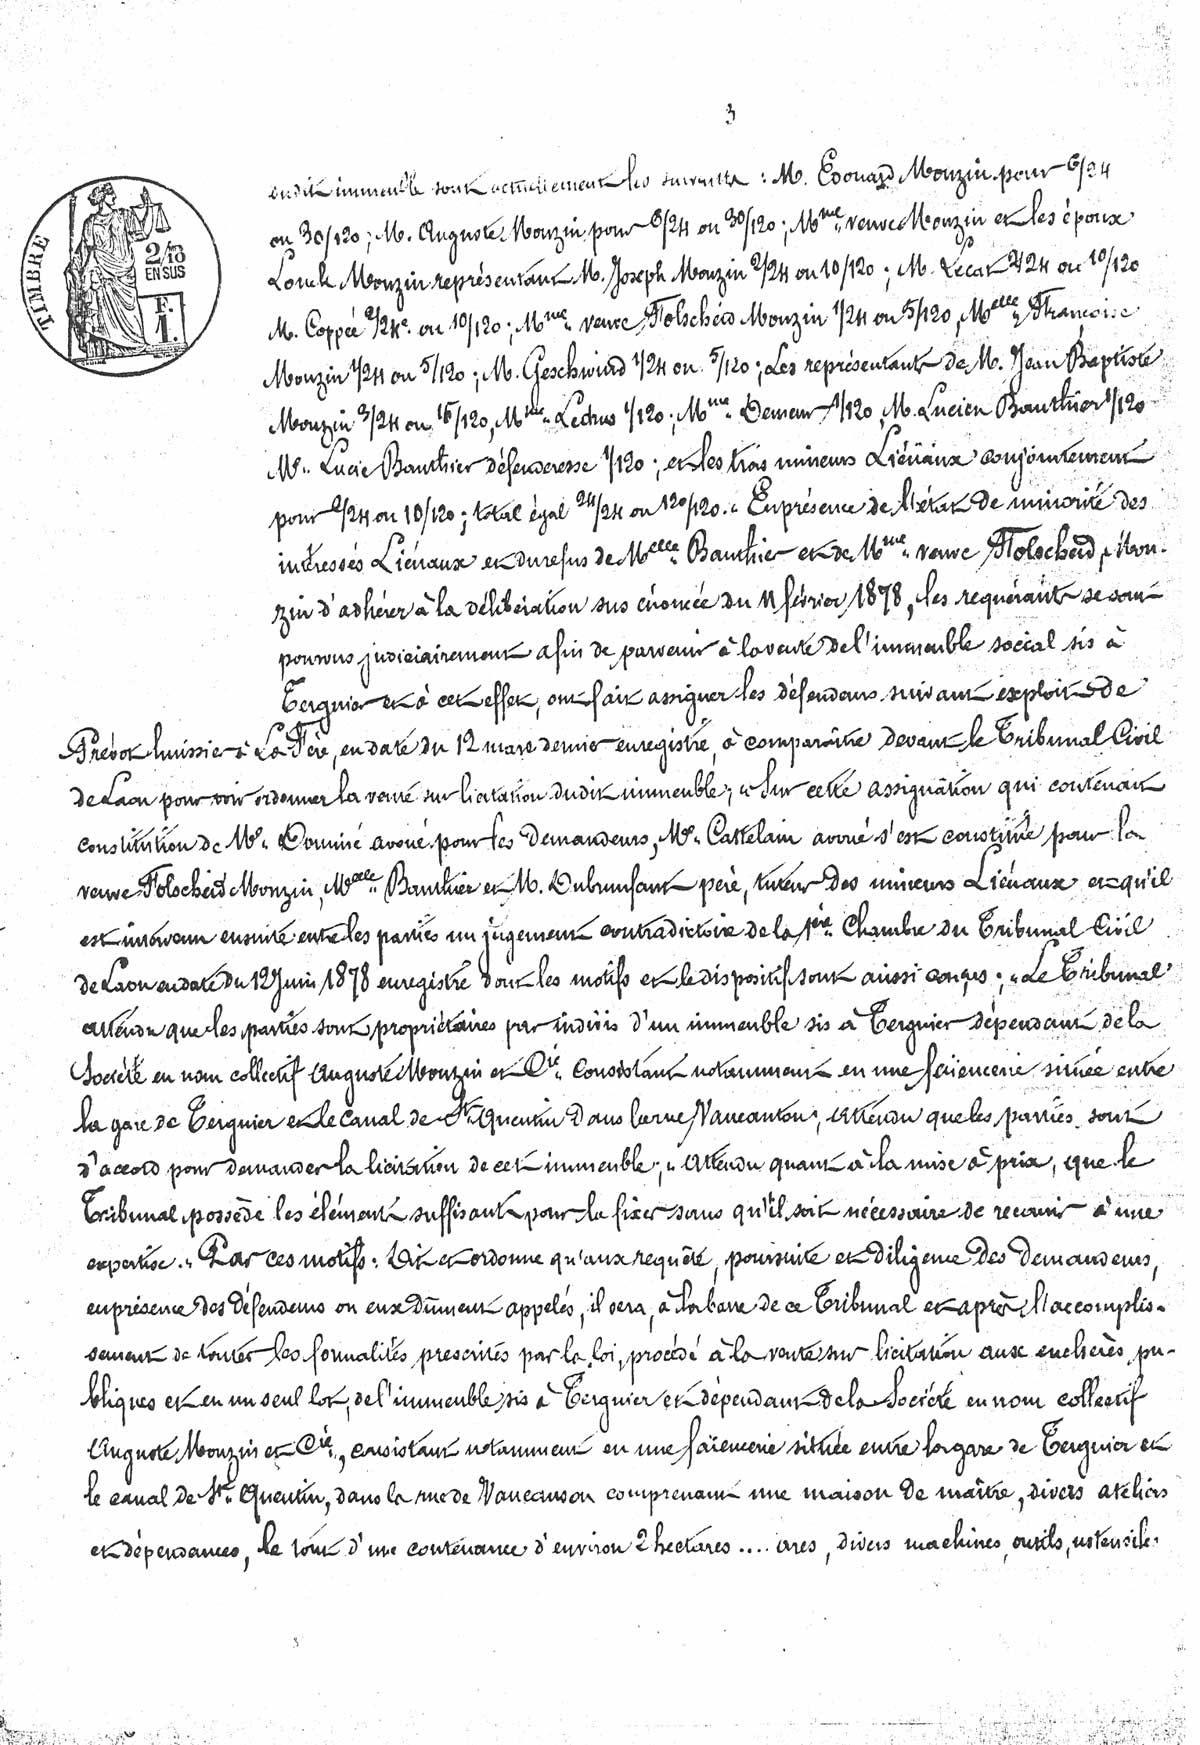 3
TIMBRE
2/10
EN SUS
F.
1.
sont actuellement les suivants : M. Edouard Monzin pour 6/24
ou 30/120 ; M. Auguste Monzin pour 6/24 ou 30/120 ; Mme veuve Monzin et les époux
Monzin représentant M. Joseph Monzin 2/24 ou 10/120 ; M. Lecat 2/24 ou 10/120
M. Coppée 2/24e ou 10/120 ; Mme veuve Folschéid Monzin 1/24 ou 5/120, Melle Françoise
Monzin 1/24 ou 5/120 ; M. Geschwind 1/24 ou 5/120 ; Les représentants de M. Jean Baptiste
Monzin 3/24 ou 15/120, Mme Ledrus 1/120 ; Mme Demeur 1/120, M. Lucien Bauthier 1/120
Lucie Bauthier défenderesse 1/120 ; et les trois mineurs Liénaux conjointement
pour 2/24 ou 10/120 ; total égal 24/24 ou 120/120. En présence de l'état de minorité des
intéressés Liénaux et du refus de Melle Bauthier et de Mme veuve Folscheid, Mon-
zin d'adhérer à la délibération sus énoncée du 11 février 1878, les requérants se sont
pourvus judiciairement afin de parvenir à la vente de l'immeuble social sis à
Tergnier et à cet effet, ont fait assigner les défendeurs suivant exploit de
Prévot huissier à La Fère, en date du 12 mars dernier enregistré, à comparaître devant le Tribunal Civil
de Laon pour voir ordonner la vente sur licitation dudit immeuble ; " Sur cette assignation qui contenait
constitution de Me Dominé avoué pour les demandeurs, Me Castelain avoué s'est constitué pour la
veuve Folschéid Monzin, Melle Bauthier et M. Dubrunfaut père, tuteur des mineurs Liénaux et qu'il
est intervenu ensuite entre les parties un jugement contradictoire de la 1ère Chambre du Tribunal Civil
de Laon en date du 12 Juin 1878 enregistré dont les motifs et le dispositif sont aussi conçus ; " Le Tribunal
attendu que les parties sont propriétaires par indivis d'un immeuble sis à Tergnier dépendant de la
Société en nom collectif Auguste Monzin et Cie Consistant notamment en une faïencerie située entre
la gare de Tergnier et le Canal de St Quentin dans la rue Vaucanson ; Attendu que les parties sont
d'accord pour demander la licitation de cet immeuble ; " Attendu quant à la mise à prix, que le
Tribunal possède les éléments suffisants pour la fixer sans qu'il soit nécessaire de recourir à une
expertise. " Par ces motifs : Dit et ordonne qu'aux requête, poursuite et diligence des demandeurs,
en présence des défendeurs ou eux dûment appelés, il sera, à la barre de ce Tribunal et après l'accomplis-
sement de toutes les formalités prescrites par la loi, procédé à la vente sur licitation aux enchères pu-
bliques et en un seul lot, de l'immeuble sis à Tergnier et dépendant de la Société en nom collectif
Auguste Monzin et Cie, consistant notamment en une faïencerie située entre la gare de Tergnier et
le canal de St Quentin, dans la rue de Vaucanson comprenant une maison de maître, divers ateliers
et dépendances, le tout d'une contenance d'environ 2 hectares .... ares, divers machines, outils, ustensiles